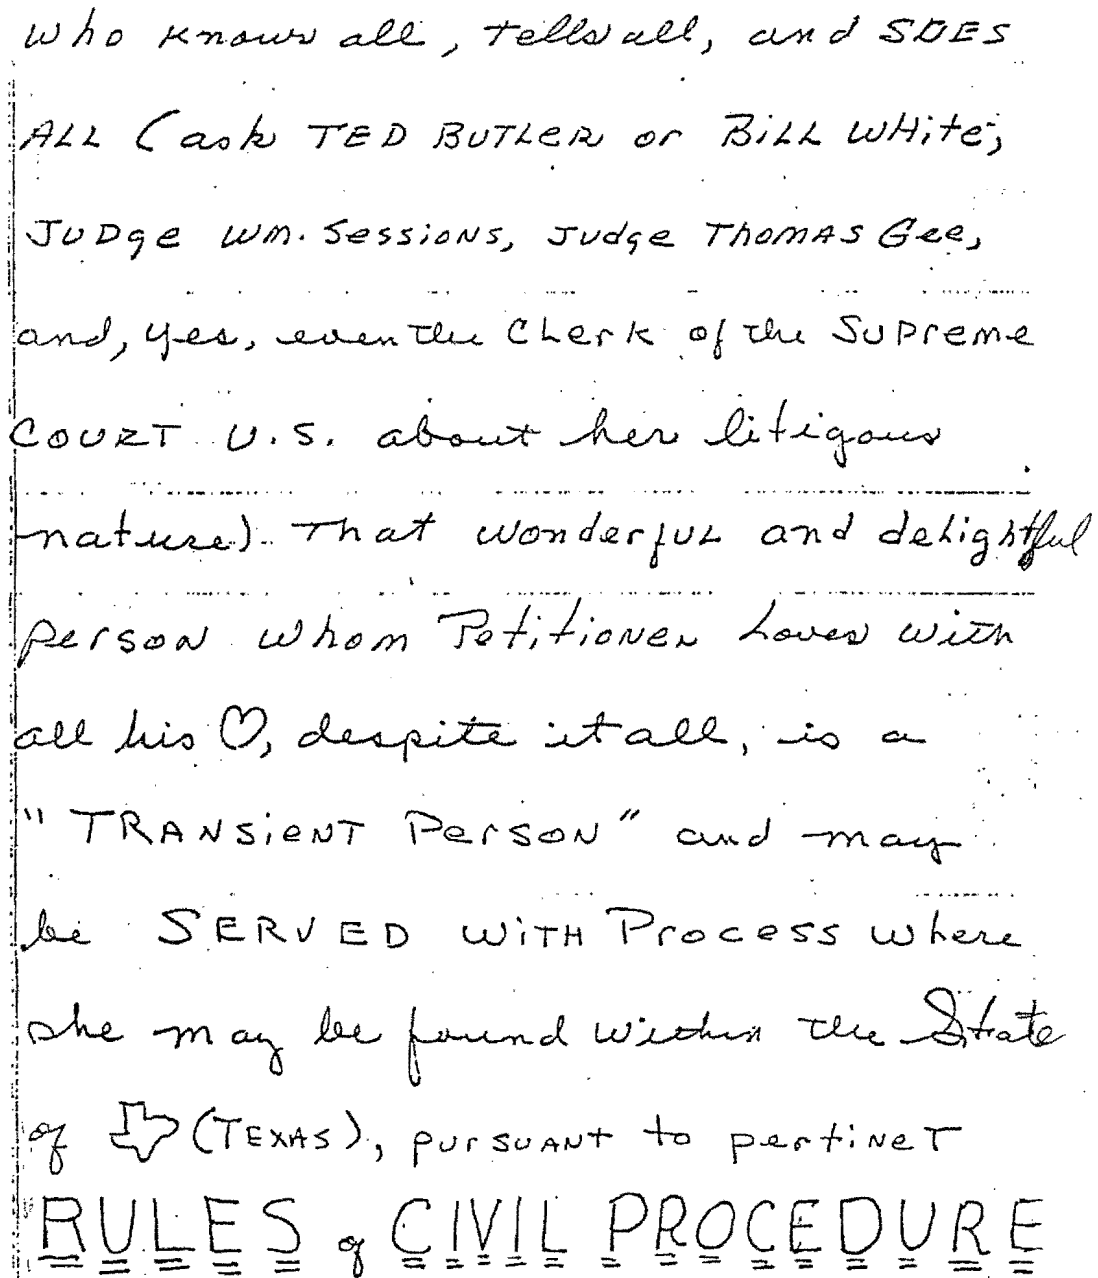 who knows all, tells all, and SUES
ALL (ask TED BUTLER or BILL WHite,
JUDge Wm. SessiONS, Judge THOMAS Gee,
and, yes, even the CLerk of the SUPreme
COURT U.S. about her litigous
nature). That wonderfUL and deLightful
PersoN whom PetitioNer Loves with
all his ♡, despite it all, is a
"TRANSieNT PersoN" and may
be SERVED WiTH Process where
she may be found within the State
of (TEXAS), pursuANT to pertiNeT
RULES of CIVIL PROCEDURE